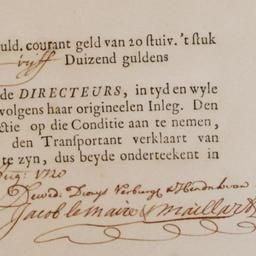 uld. courant geld van 20 stuiv. 't stuk
vijff Duizend guldens
de DIRECTEURS, in tyd en wyle
volgens haar origineelen Inleg. Den
ctie op die Conditie aan te nemen,
den Transportant verklaart van
te zyn, dus beyde onderteekent in
Aug: 1720
Dionys Verburgh &
Jacob lemaire Maillart